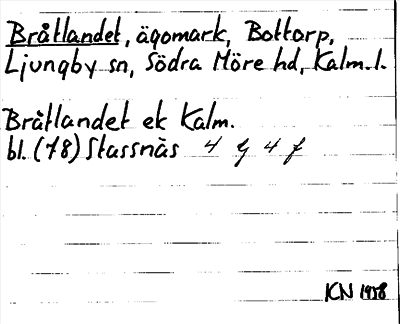 Bråtlandet, ägomark, Bottorp,
Ljungby sn, Södra Möre hd, Kalm. l.
Bråtlandet ek Kalm.
bl. (78) Stassnäs 4 g 4 f
KN 1958